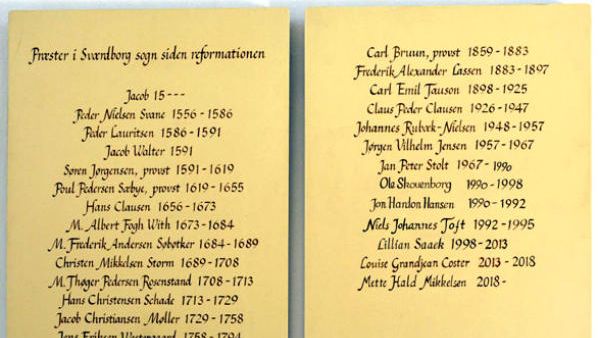 Præster i Sværdborg sogn siden reformationen
Jacob 15---
Peder Nielsen Svane 1556-1586
Peder Lauritsen 1586-1591
Jacob Walter 1591
Søren Jørgensen, provst 1591-1619
Poul Pedersen Sæbye, provst 1619-1655
Hans Clausen 1656-1673
M. Albert Fogh With 1673-1684
M. Frederik Andersen Søbotker 1684-1689
Christen Mikkelsen Storm 1689-1708
M. Thøger Pedersen Rosenstand 1708-1713
Hans Christensen Schade 1713-1729
Jacob Christiansen Møller 1729-1758
Jens Eriksen 1758-1794
Carl Bruun, provst 1859-1883
Frederik Alexander Lassen 1883-1897
Carl Emil Tauson 1898-1925
Claus Peder Clausen 1926-1947
Johannes Rubæk-Nielsen 1948-1957
Jørgen Vilhelm Jensen 1957-1967
Jan Peter Stolt 1967-1990
Ola Skouenborg 1990-1998
Jon Hardon Hansen 1990-1992
Niels Johannes Toft 1992-1995
Lillian Saaek 1998-2013
Louise Grandjean Coster 2013-2018
Mette Hald Mikkelsen 2018-